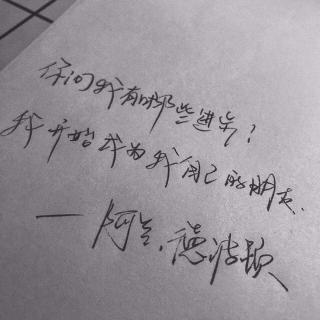 你问我有哪些进步?
我开始成为我自己的朋友.
——阿兰.德波顿